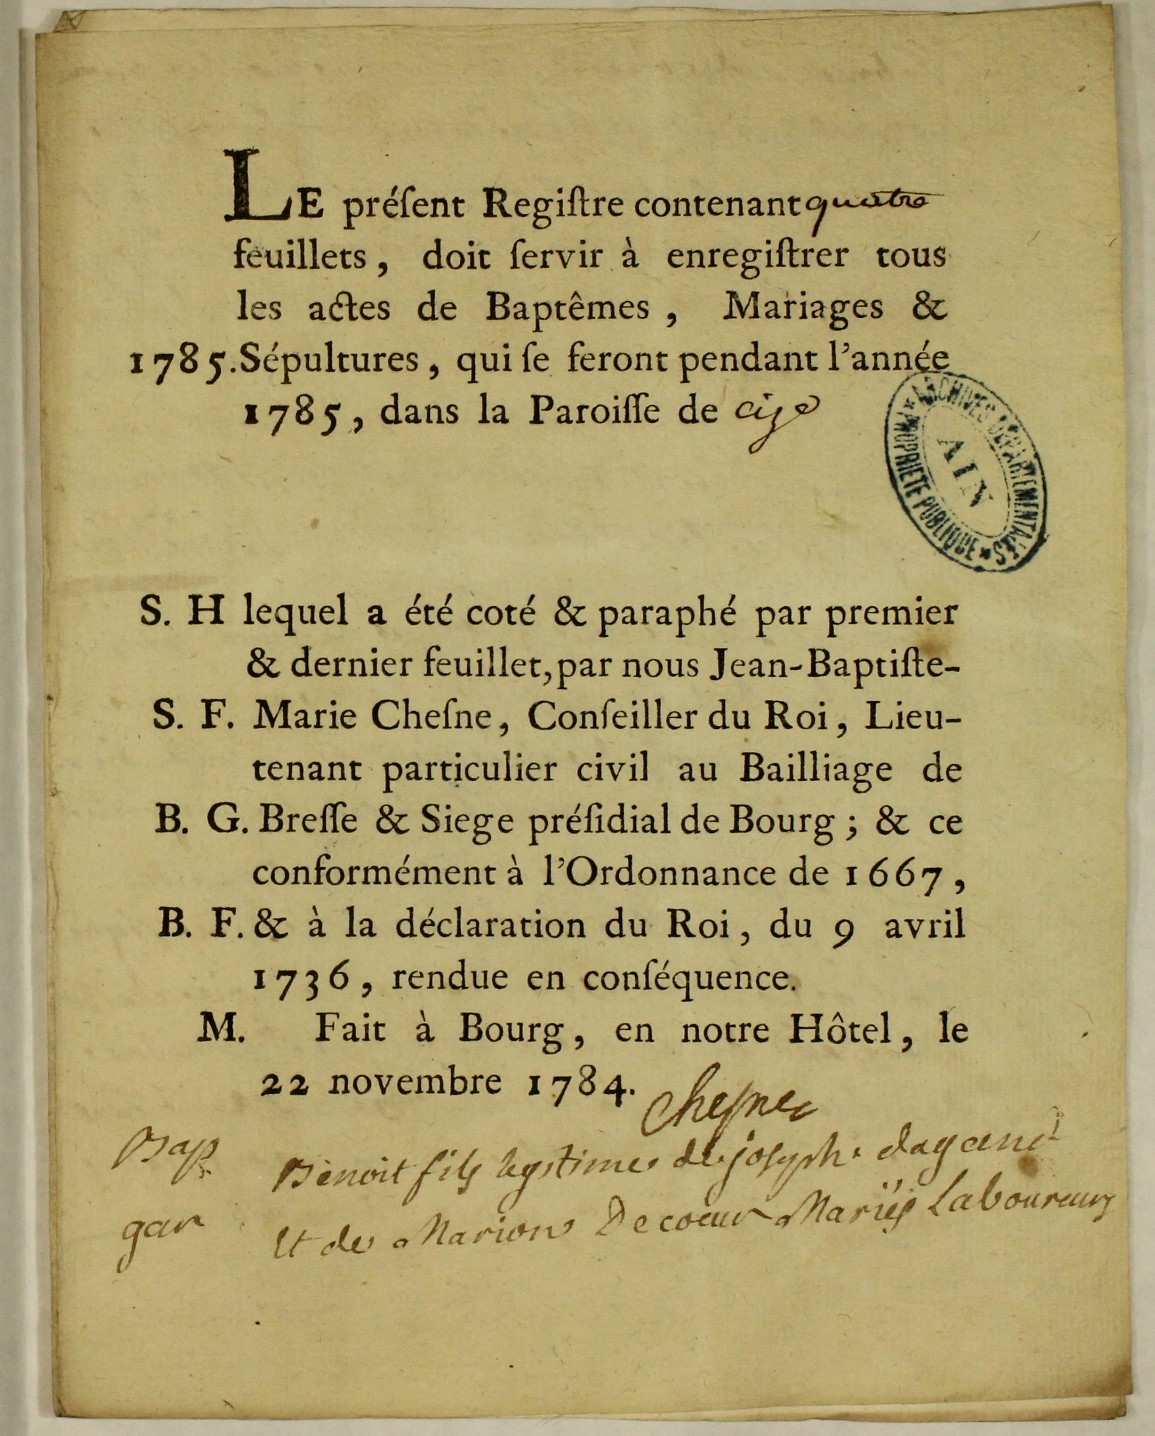 LE préſent Regiſtre contenant quatre
feuillets, doit ſervir à enregiſtrer tous
les actes de Baptêmes, Mariages &
1785. Sépultures, qui ſe feront pendant l'année
1785, dans la Paroiſſe de cize
ARCHIVES DÉPARTEMENTALES
AIN
PROPRIÉTÉ PUBLIQUE
S. H lequel a été coté & paraphé par premier
& dernier feuillet, par nous Jean-Baptiſte-
S. F. Marie Cheſne, Conſeiller du Roi, Lieu-
tenant particulier civil au Bailliage de
B. G. Breſſe & Siege préſidial de Bourg; & ce
conformément à l'Ordonnance de 1667,
B. F. & à la déclaration du Roi, du 9 avril
1736, rendue en conſéquence.
M. Fait à Bourg, en notre Hôtel, le
22 novembre 1784.
Chesne
Bap Benoit fils legitime de joseph dagand
gar Et de Marion Decoeur Mariés Laboureurs